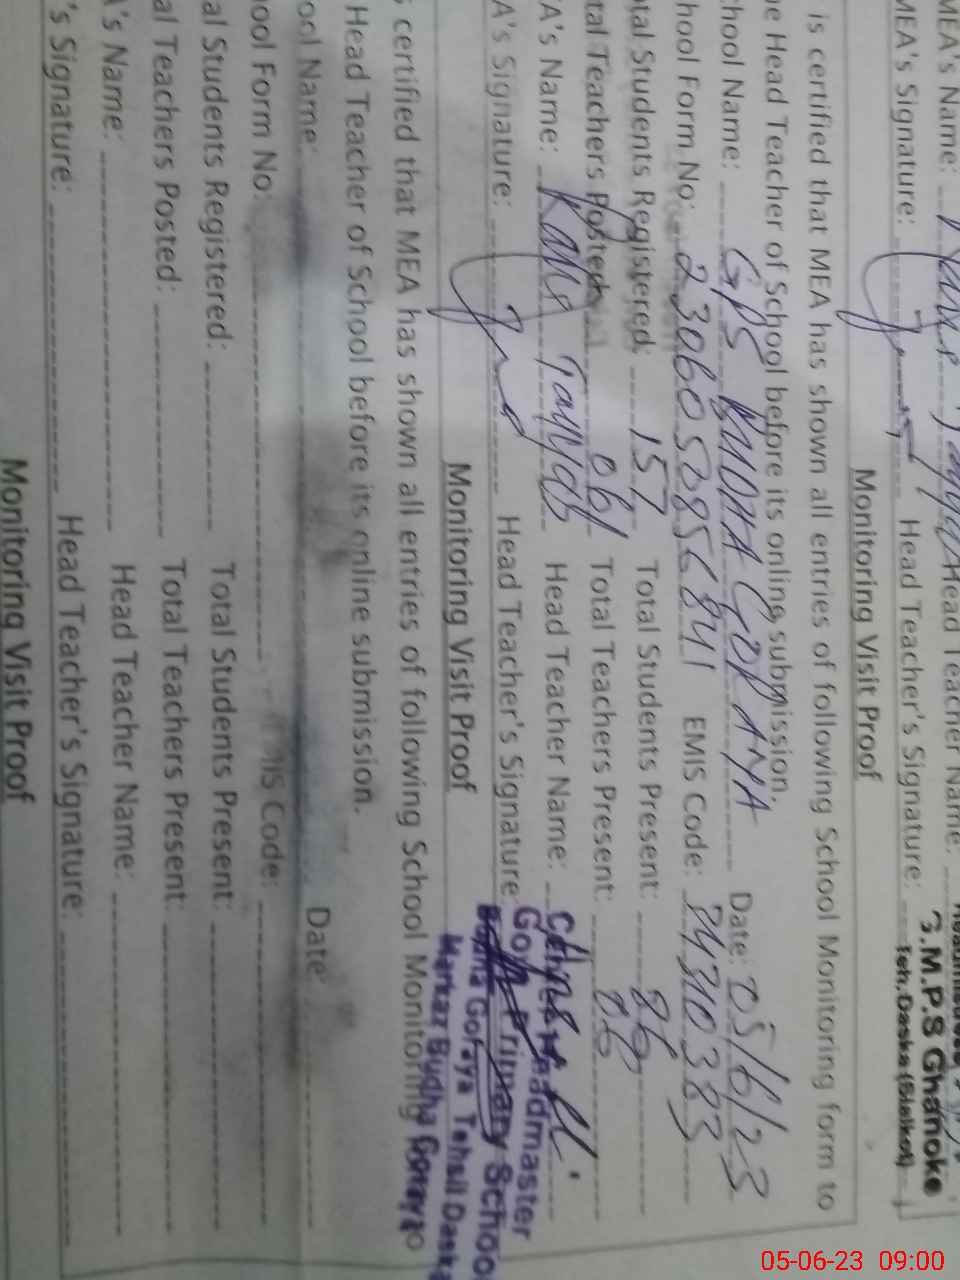 MEA's Name: Head Teacher Name:
MEA's Signature: Head Teacher's Signature:
G.M.P.S Ghanoke
Teh.Daska(Sialkot)
Monitoring Visit Proof
is certified that MEA has shown all entries of following School Monitoring form to
e Head Teacher of School before its online submission.
chool Name: GPS BUDHA GORAYA Date: 05/6/23
hool Form No: EMIS Code: 34310383
tal Students Registered: 157 Total Students Present: 86
tal Teachers Posted: 06 Total Teachers Present: 06
A's Name: Tayyab Head Teacher Name:
A's Signature: Head Teacher's Signature:
Headmaster
Govt Primary School
Budha Goraya Tehsil Daska
Markaz Budha Goraya
Monitoring Visit Proof
certified that MEA has shown all entries of following School Monitoring form to
Head Teacher of School before its online submission.
ool Name: Date:
ool Form No: EMIS Code:
al Students Registered: Total Students Present:
al Teachers Posted: Total Teachers Present:
A's Name: Head Teacher Name:
's Signature: Head Teacher's Signature:
Monitoring Visit Proof
05-06-23 09:00